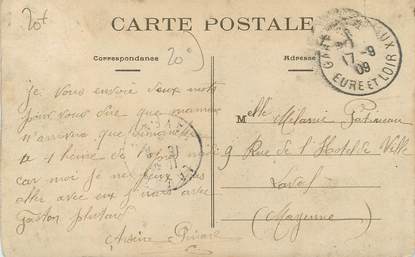 20t
CARTE POSTALE
20
Correspondance
Adresse
17-9
09
EURE ET LOIR
je vous envoie deux mots
pour vous dire que maman
n'arrivera que
a 1 heure de
car moi je ne peux pas
aller avec eux j'irais avec
Gaston plus tard
Melle Mélanie
9 Rue de l'Hostel de Ville
Laval
(Mayenne)